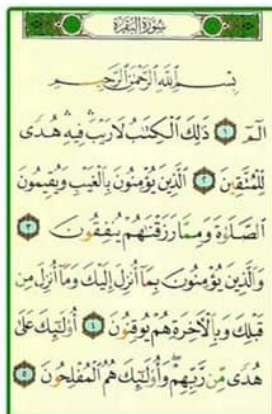 سُورَةُ الْبَقَرَةِ
بِسْمِ اللَّهِ الرَّحْمَٰنِ الرَّحِيمِ
الٓمٓ ۝١ ذَٰلِكَ الْكِتَٰبُ لَا رَيْبَ ۛ فِيهِ ۛ هُدًى
لِّلْمُتَّقِينَ ۝٢ الَّذِينَ يُؤْمِنُونَ بِالْغَيْبِ وَيُقِيمُونَ
الصَّلَوٰةَ وَمِمَّا رَزَقْنَٰهُمْ يُنفِقُونَ ۝٣
وَالَّذِينَ يُؤْمِنُونَ بِمَآ أُنزِلَ إِلَيْكَ وَمَآ أُنزِلَ مِن
قَبْلِكَ وَبِالْآخِرَةِ هُمْ يُوقِنُونَ ۝٤ أُو۟لَٰٓئِكَ عَلَىٰ
هُدًى مِّن رَّبِّهِمْ ۖ وَأُو۟لَٰٓئِكَ هُمُ الْمُفْلِحُونَ ۝٥